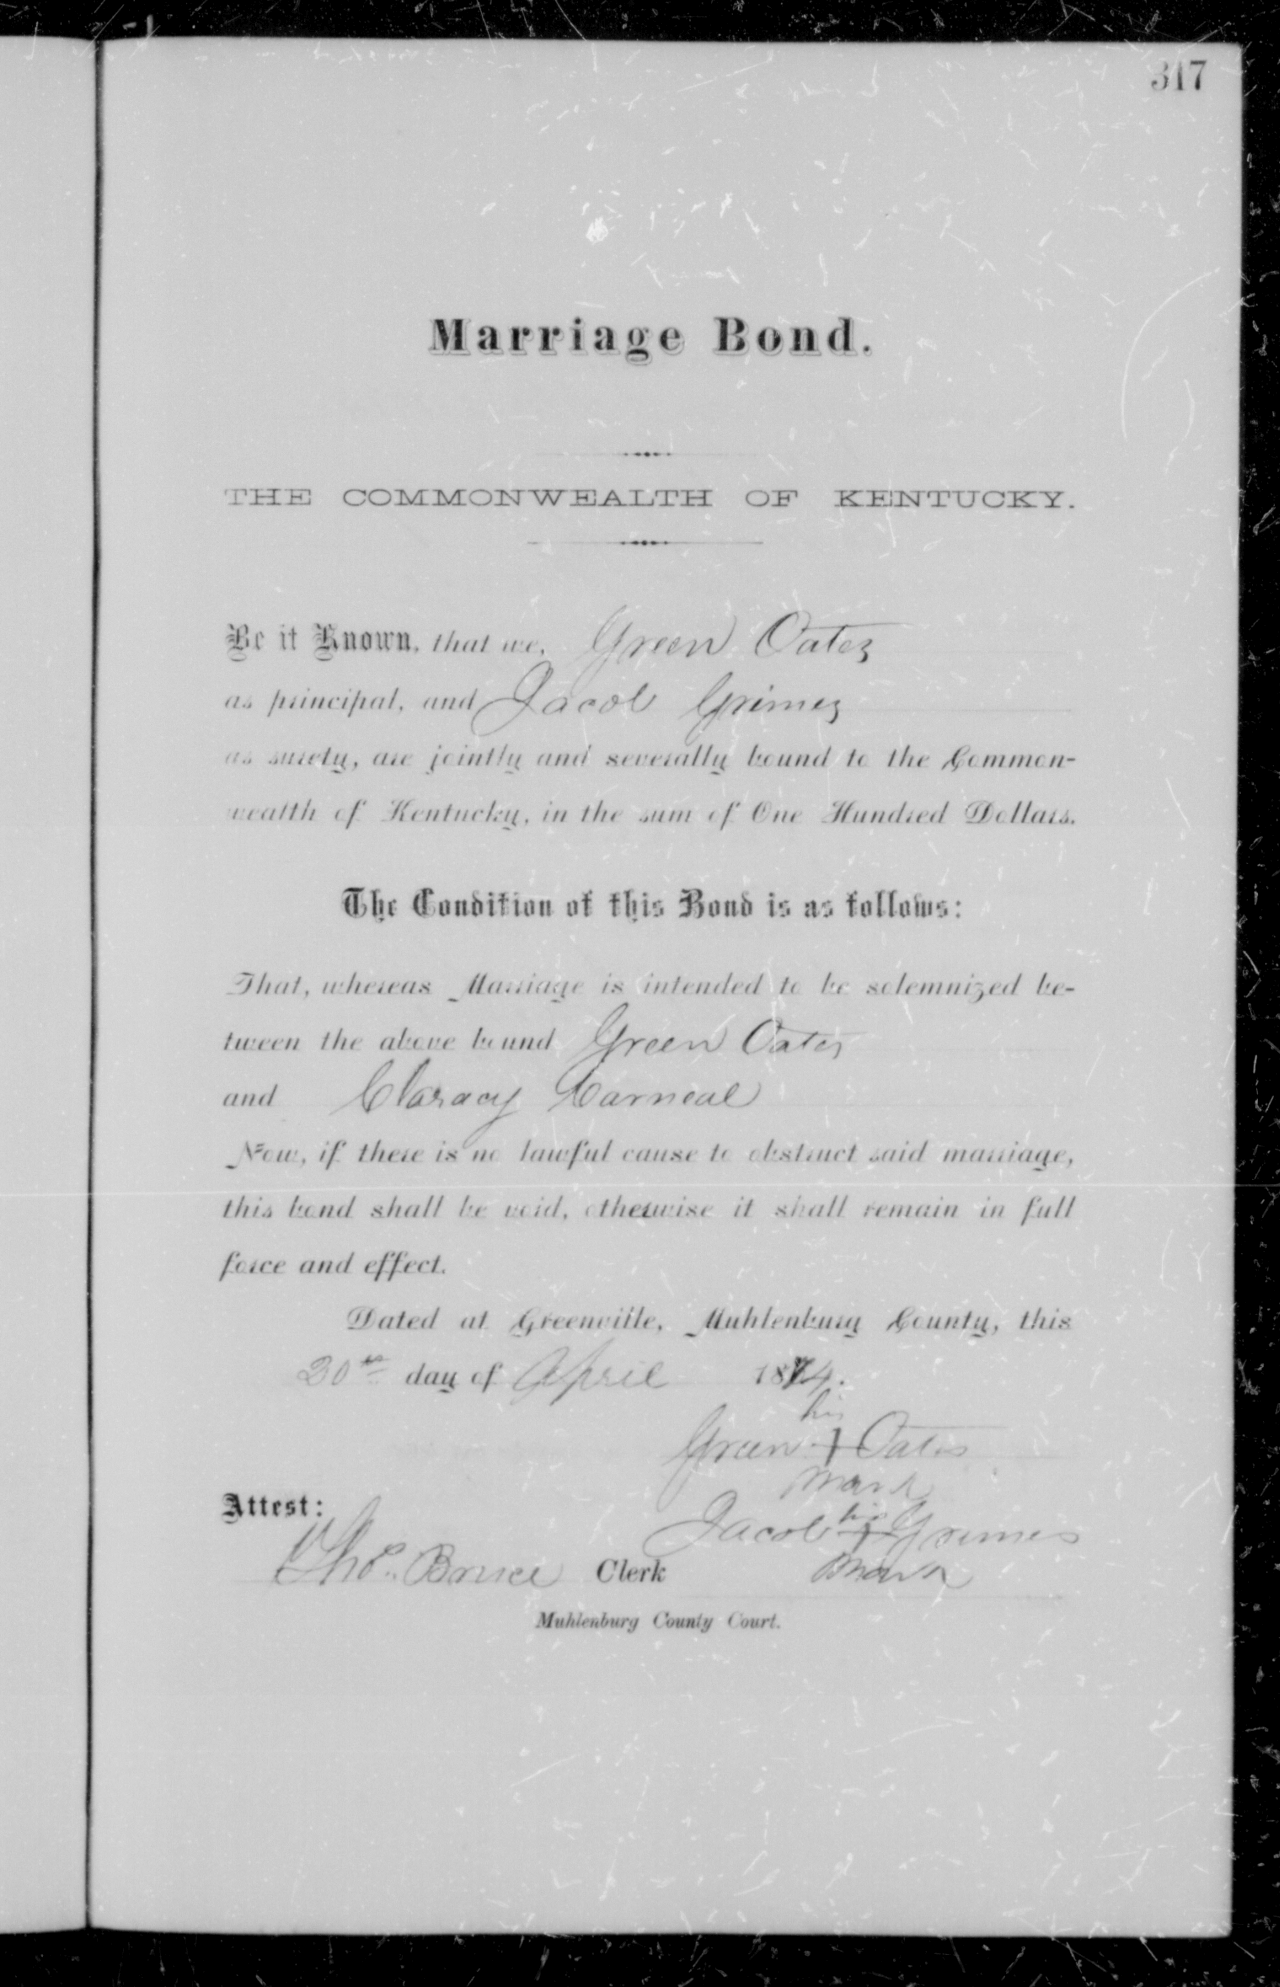 317
Marriage Bond.
THE COMMONWEALTH OF KENTUCKY.
Be it Known, that we, Green Oates
as principal, and Jacob Grimes
as surety, are jointly and severally bound to the Common-
wealth of Kentucky, in the sum of One Hundred Dollars.
The Condition of this Bond is as follows:
That, whereas Marriage is intended to be solemnized be-
tween the above bound Green Oates
and Claracy Carneal
Now, if there is no lawful cause to obstruct said marriage,
this bond shall be void, otherwise it shall remain in full
force and effect.
Dated at Greenville, Muhlenburg County, this
30th day of April 1874.
his
Green + Oates
mark
Attest:
Jacob his + Grimes
Tho. Bruce Clerk mark
Muhlenburg County Court.